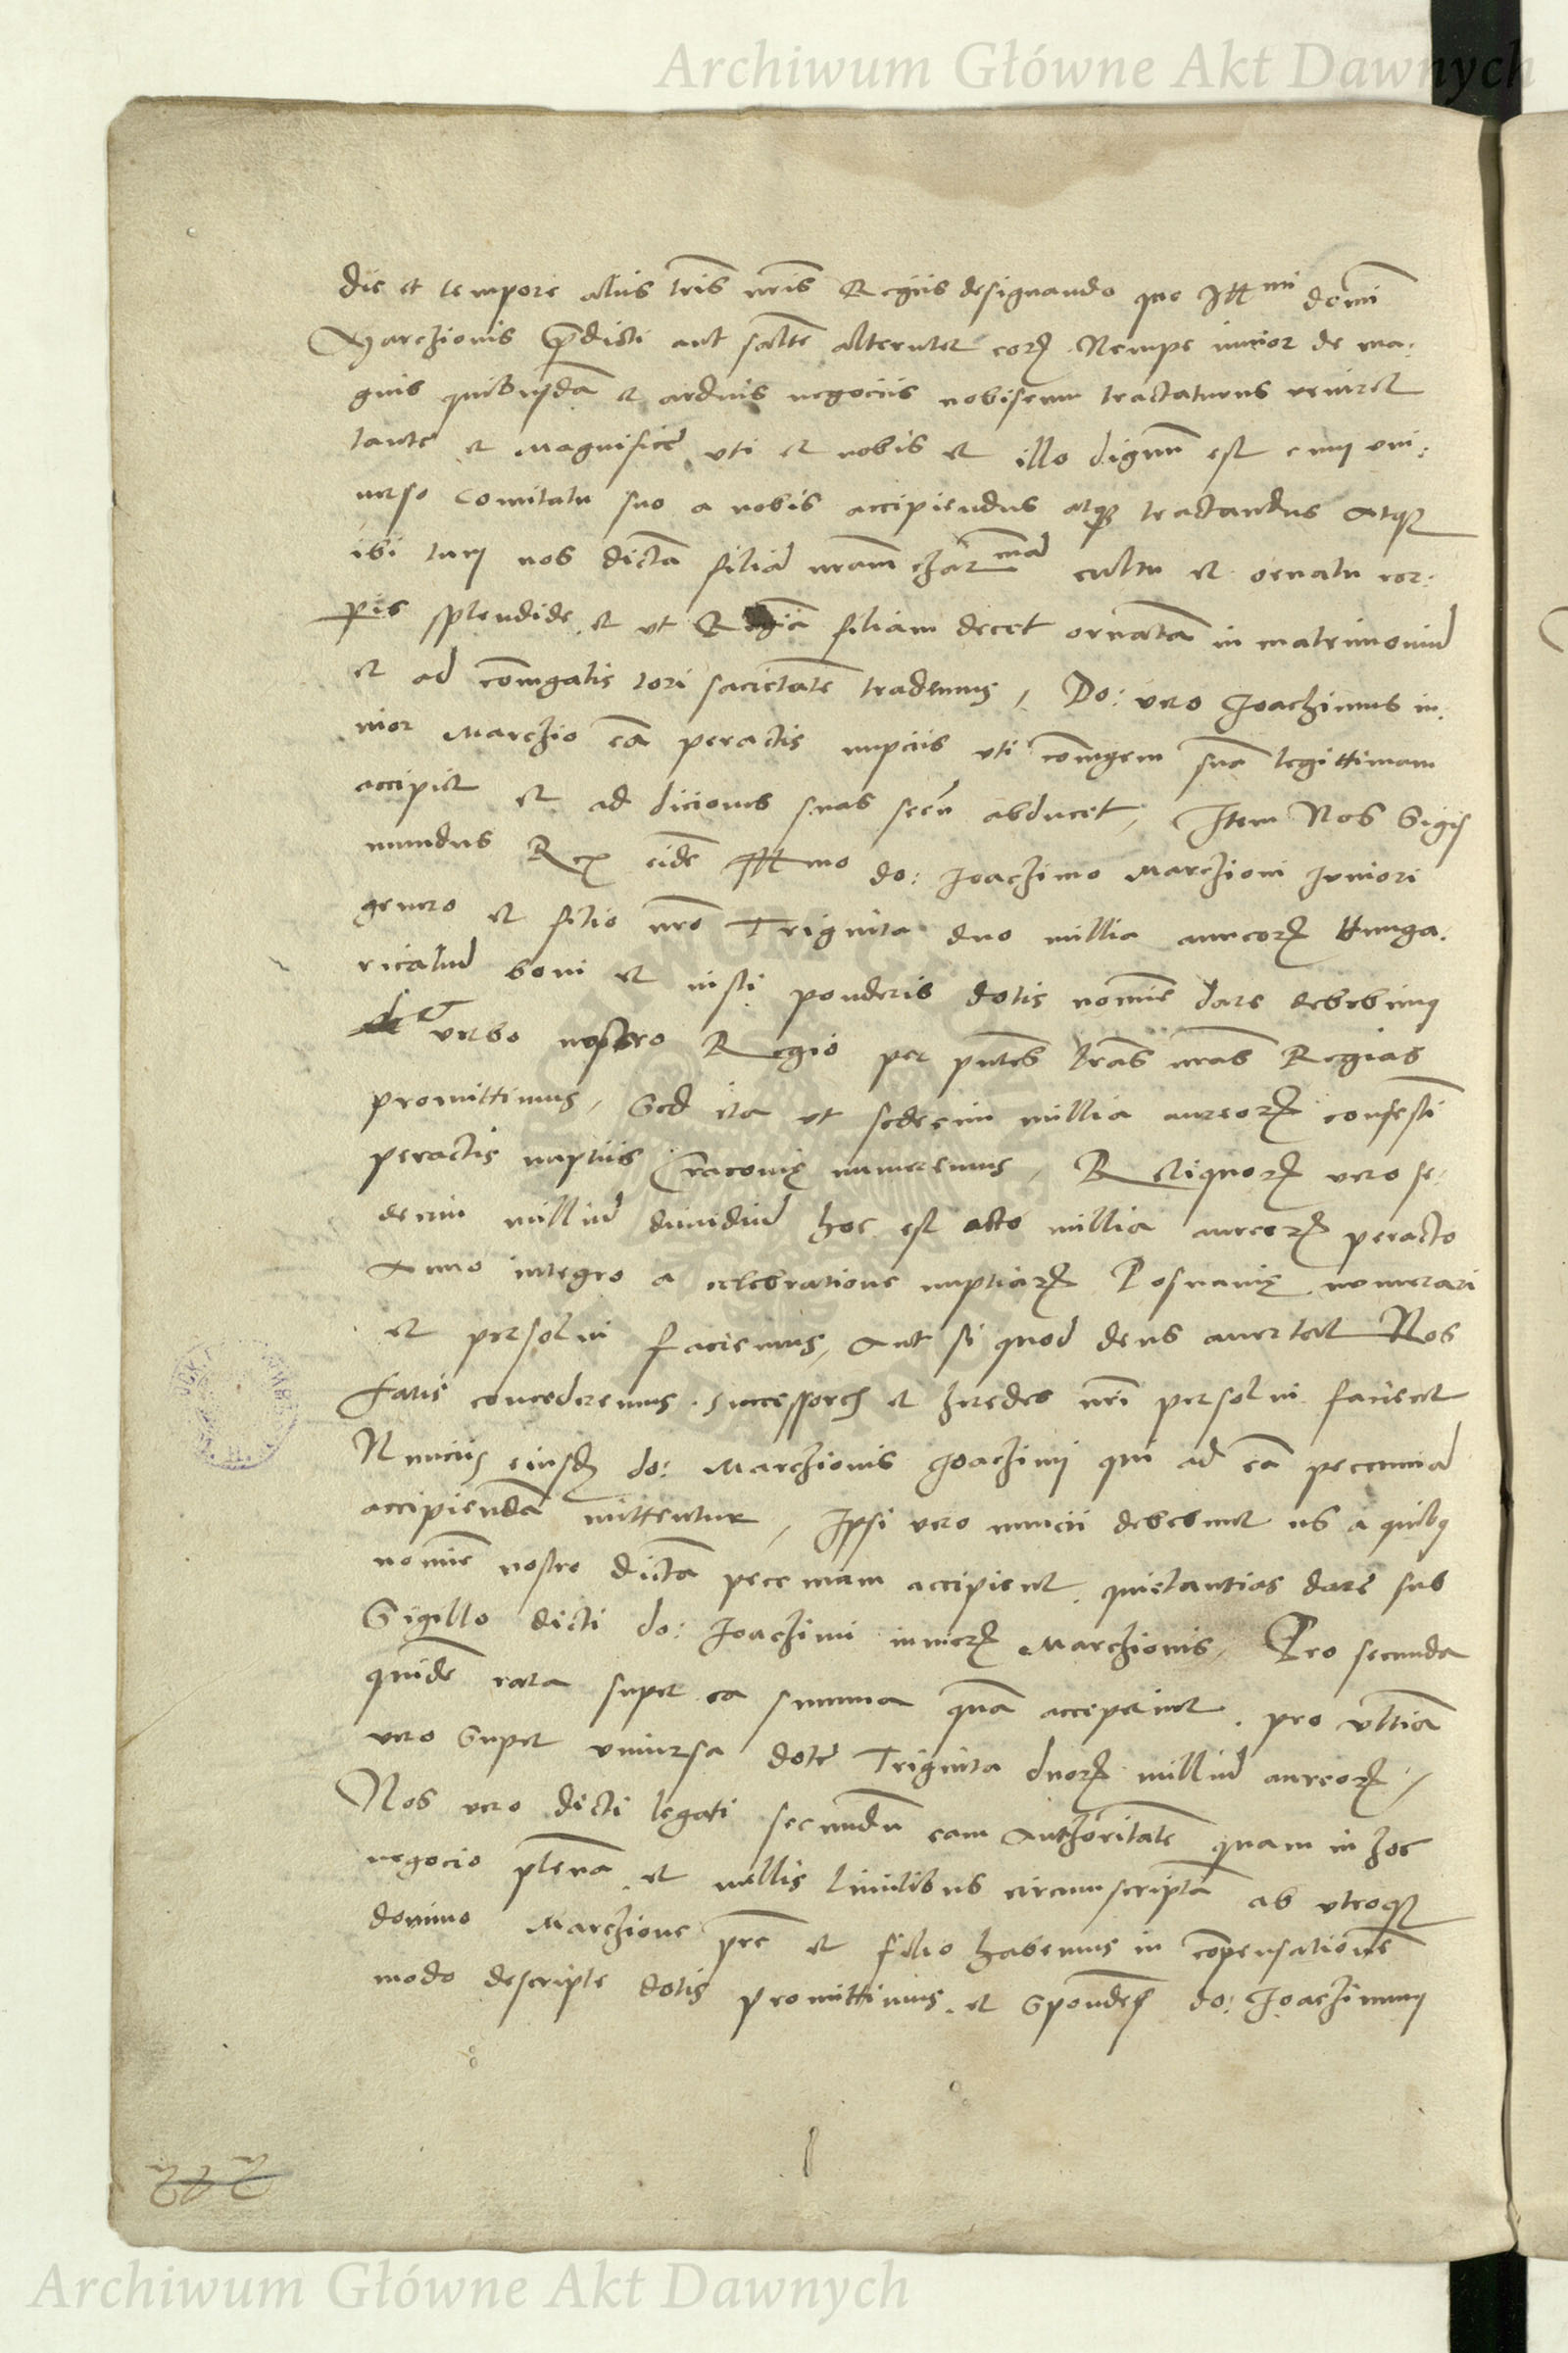 Archiwum Główne Akt Dawnych
die et tempore aliis lris nris Regiis designando quo Illmi domi
Marchiones p̄dicti aut saltē alteruter eorꝝ. Nempe iunior de ma:
gnis quibusdā et arduis negociis nobiscum tractaturus veniret
lautē et Magnificē uti et nobis et illo dignum est cum vni:
uerso Comitatu suo a nobis accipiendus atqꝫ tractandus Atqꝫ
ibi tum nos dictā filiā nram charmā cultu et ornatu cor:
pis splendide et ut Regiā filiam decet ornatā in matrimoniū
et ad coniugalis tori societatē trademus, Do: vero Joachimus iu:
nior Marchio eā peractis nupciis uti coniugem suā legittimam
accipiet et ad diciones suas secū abducet, Item Nos Sigis
mundus Rex eidē Illmo do: Joachimo Marchioni Juniori
genero et filio nro Triginta duo millia aureorꝝ Hunga:
ricaliū boni et iusti ponderis dotis nomīe dare debebimus
et verbo nostro Regio per pntes lras nras Regias
promittimus, Sed ita ut sedecim millia aureorꝝ confestī
peractis nuptiis Cracouię numeremus, Reliquorꝝ vero se:
decim milliū dimidiū hoc est octo millia aureorꝝ peracto
Anno integro a celebratione nuptiarꝝ Posnanię numerari
et persolui faciemus, Aut si quod deus auertat Nos
fatis concederemus, successores et hęredes nri persolui facient
Nunciis eiusdē do: Marchionis Joachimi qui ad eā peccuniā
accipiendā mittentur, Ipsi vero nuncii debebunt iis a quibus
nomīe nostro dictā peccuniam accipient, quietantias dare sub
Sigillo dicti do: Joachimi iuniorꝝ Marchionis, Pro secunda
quidē rata super ea summa quā acceperint, pro vltīa
vero super vniuersa dotē Triginta duorꝝ milliū aureorꝝ,
Nos vero dicti legati secundū eam Authoritatē quam in hoc
negocio plenā et nullis limitibus circumscriptā ab vtroqꝫ
domino Marchione pre et filio habemus in cōpensationē
modo descripte dotis promittimus et spondemus do: Joachimum
Archiwum Główne Akt Dawnych